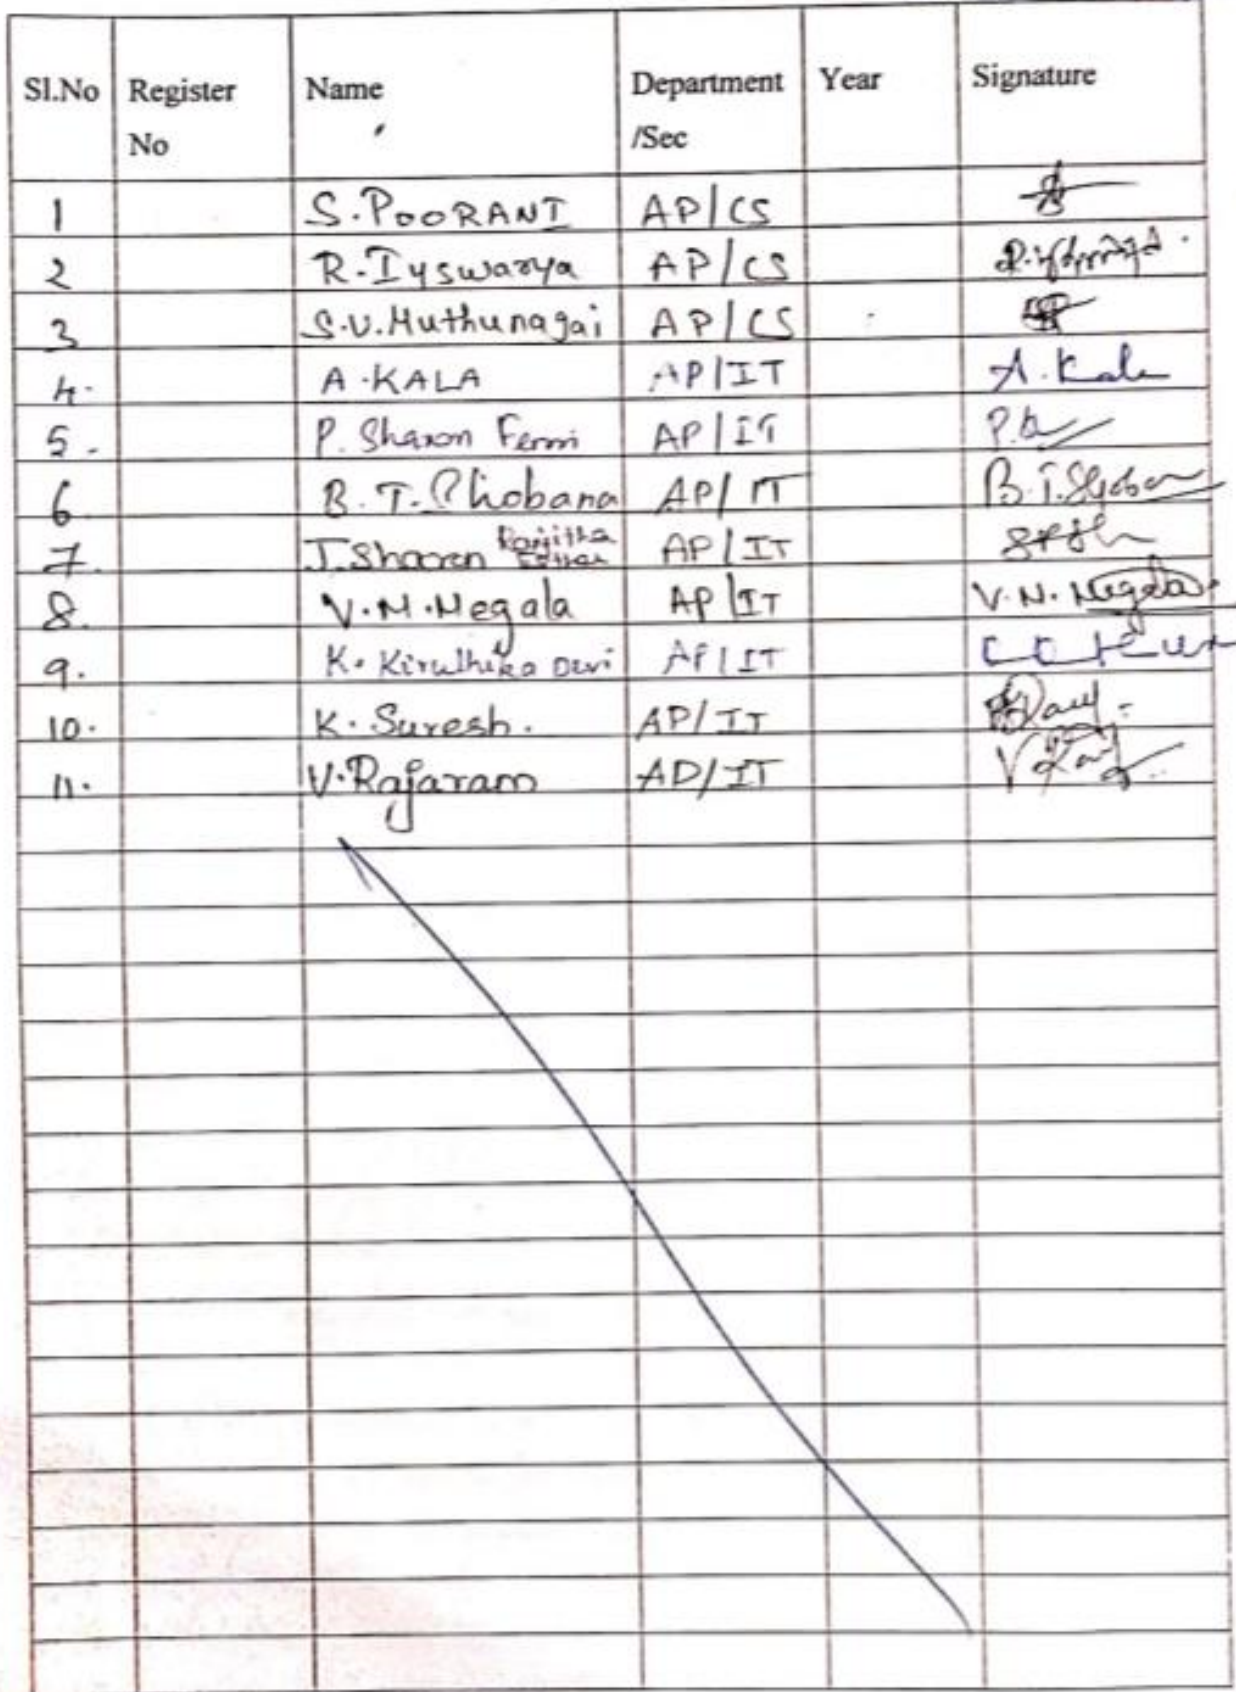 Sl.No Register No Name Department /Sec Year Signature
1 S.POORANI AP/CS
2 R.Iyswarya AP/CS
3 S.V.Muthunagai AP/CS
4. A.KALA AP/IT A.Kala
5. P. Sharon Femi AP/IT
6 B.T.Shobana AP/IT B.T.Shoban
7. J.Sharon Ranjitha Esther AP/IT
8. V.M.Megala AP/IT V.M.Megala
9. K.Kiruthika Devi AP/IT
10. K.Suresh. AP/IT
11. V.Rajaram AD/IT